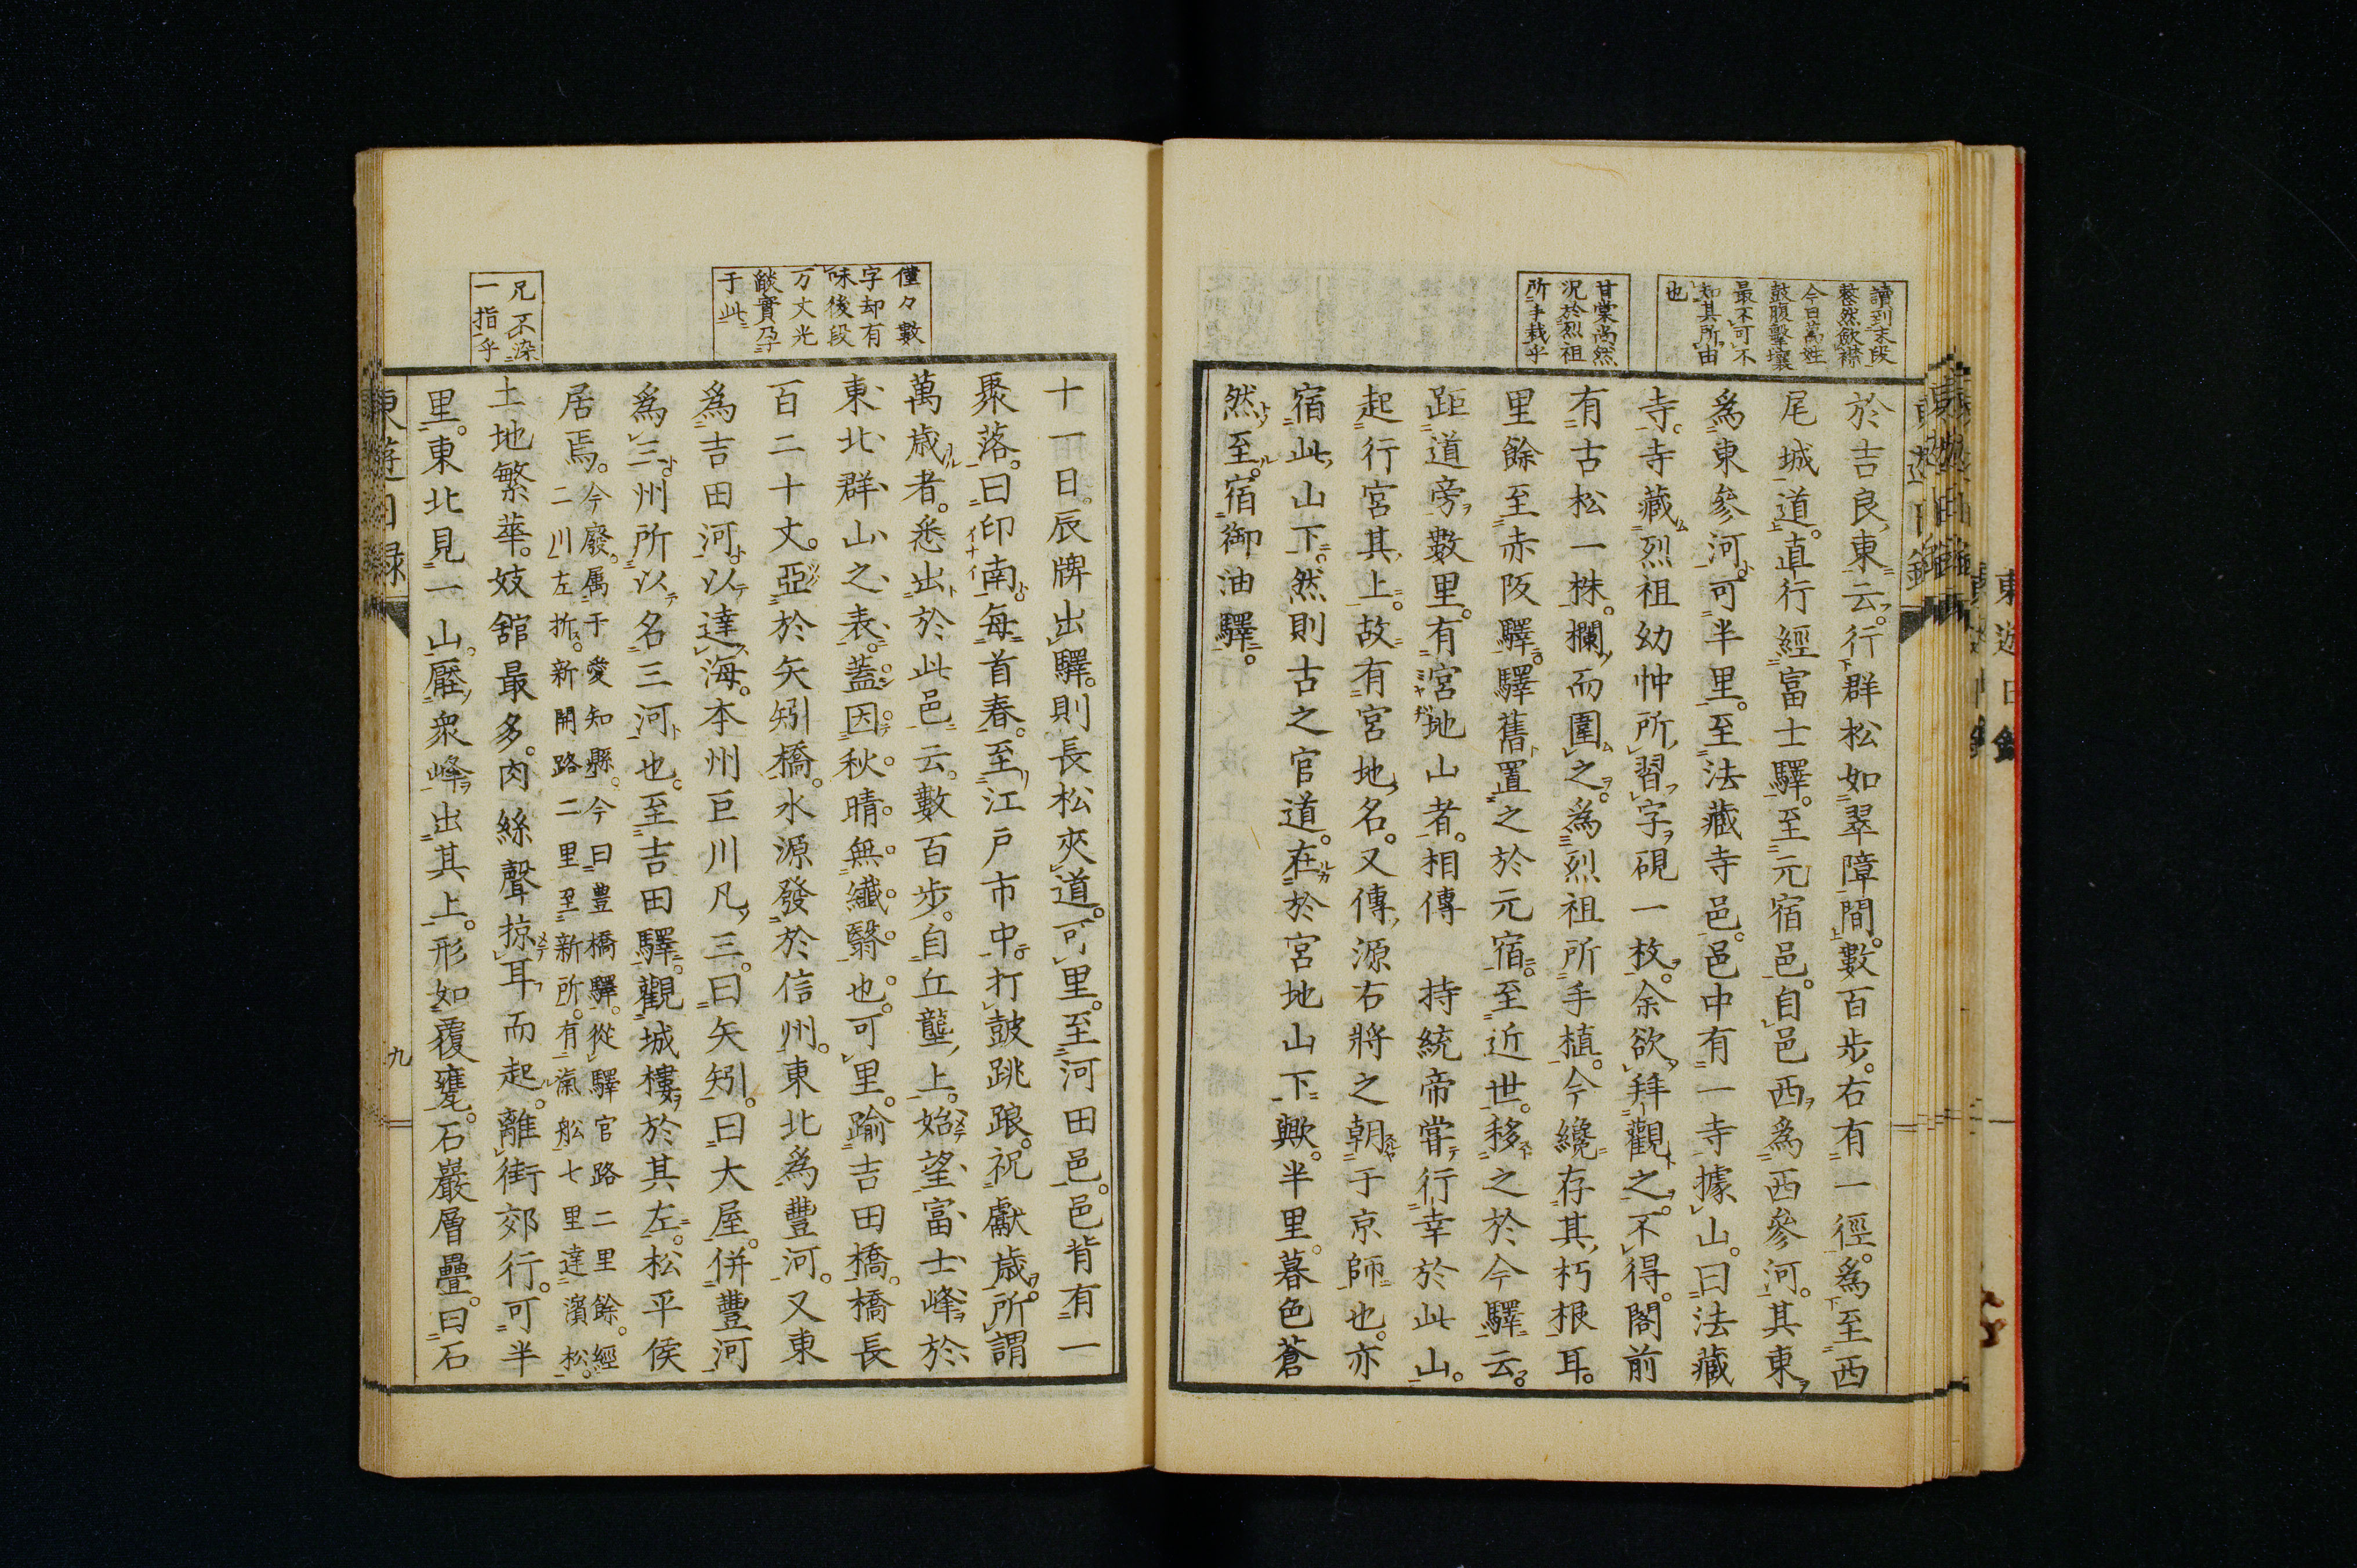 讀到末段
整然斂襟
今日萬姓
鼓腹擊壤
最不可不
知其所由
也
甘棠尚然
況於烈祖
所手栽乎
於吉良東云行群松如翠障間數百步右有一徑爲至西
尾城道直行經富士驛至元宿邑自邑西爲西參河其東
爲東參河可半里至法藏寺邑邑中有一寺據山曰法藏
寺寺藏烈祖幼冲所習字硯一枚余欲拜觀之不得閣前
有古松一株欄而圍之爲烈祖所手植今纔存其朽根耳
里餘至赤阪驛驛舊置之於元宿至近世移之於今驛云
距道旁數里有宮地山者相傳 持統帝嘗行幸於此山
起行宮其上故有宮地名又傳源右將之朝于京師也亦
宿此山下然則古之官道在於宮地山下歟半里暮色蒼
然至宿御油驛
僅々數
字却有
味後段
万丈光
燄實孕
于此
兄不染
一指乎
十一日辰牌出驛則長松夾道可里至河田邑邑背有一
聚落曰印南每首春至江戶市中打皷跳踉祝獻歲所謂
萬歲者悉出於此邑云數百步自丘壟上始望富士峰於
東北群山之表蓋因秋晴無纖翳也可里踰吉田橋橋長
百二十丈亞於矢矧橋水源發於信州東北爲豐河又東
爲吉田河以達海本州巨川凡三曰矢矧曰大屋併豐河
爲三州所以名三河也至吉田驛觀城樓於其左松平侯
居焉今廢属于愛知縣今曰豊橋驛從驛官路二里餘經
二川左折新開路二里至新所有滊舩七里達濱松
土地繁華妓舘最多肉絲聲掠耳而起離街郊行可半
里東北見一山壓衆峰出其上形如覆甕石巖層疊曰石
東遊日録
九